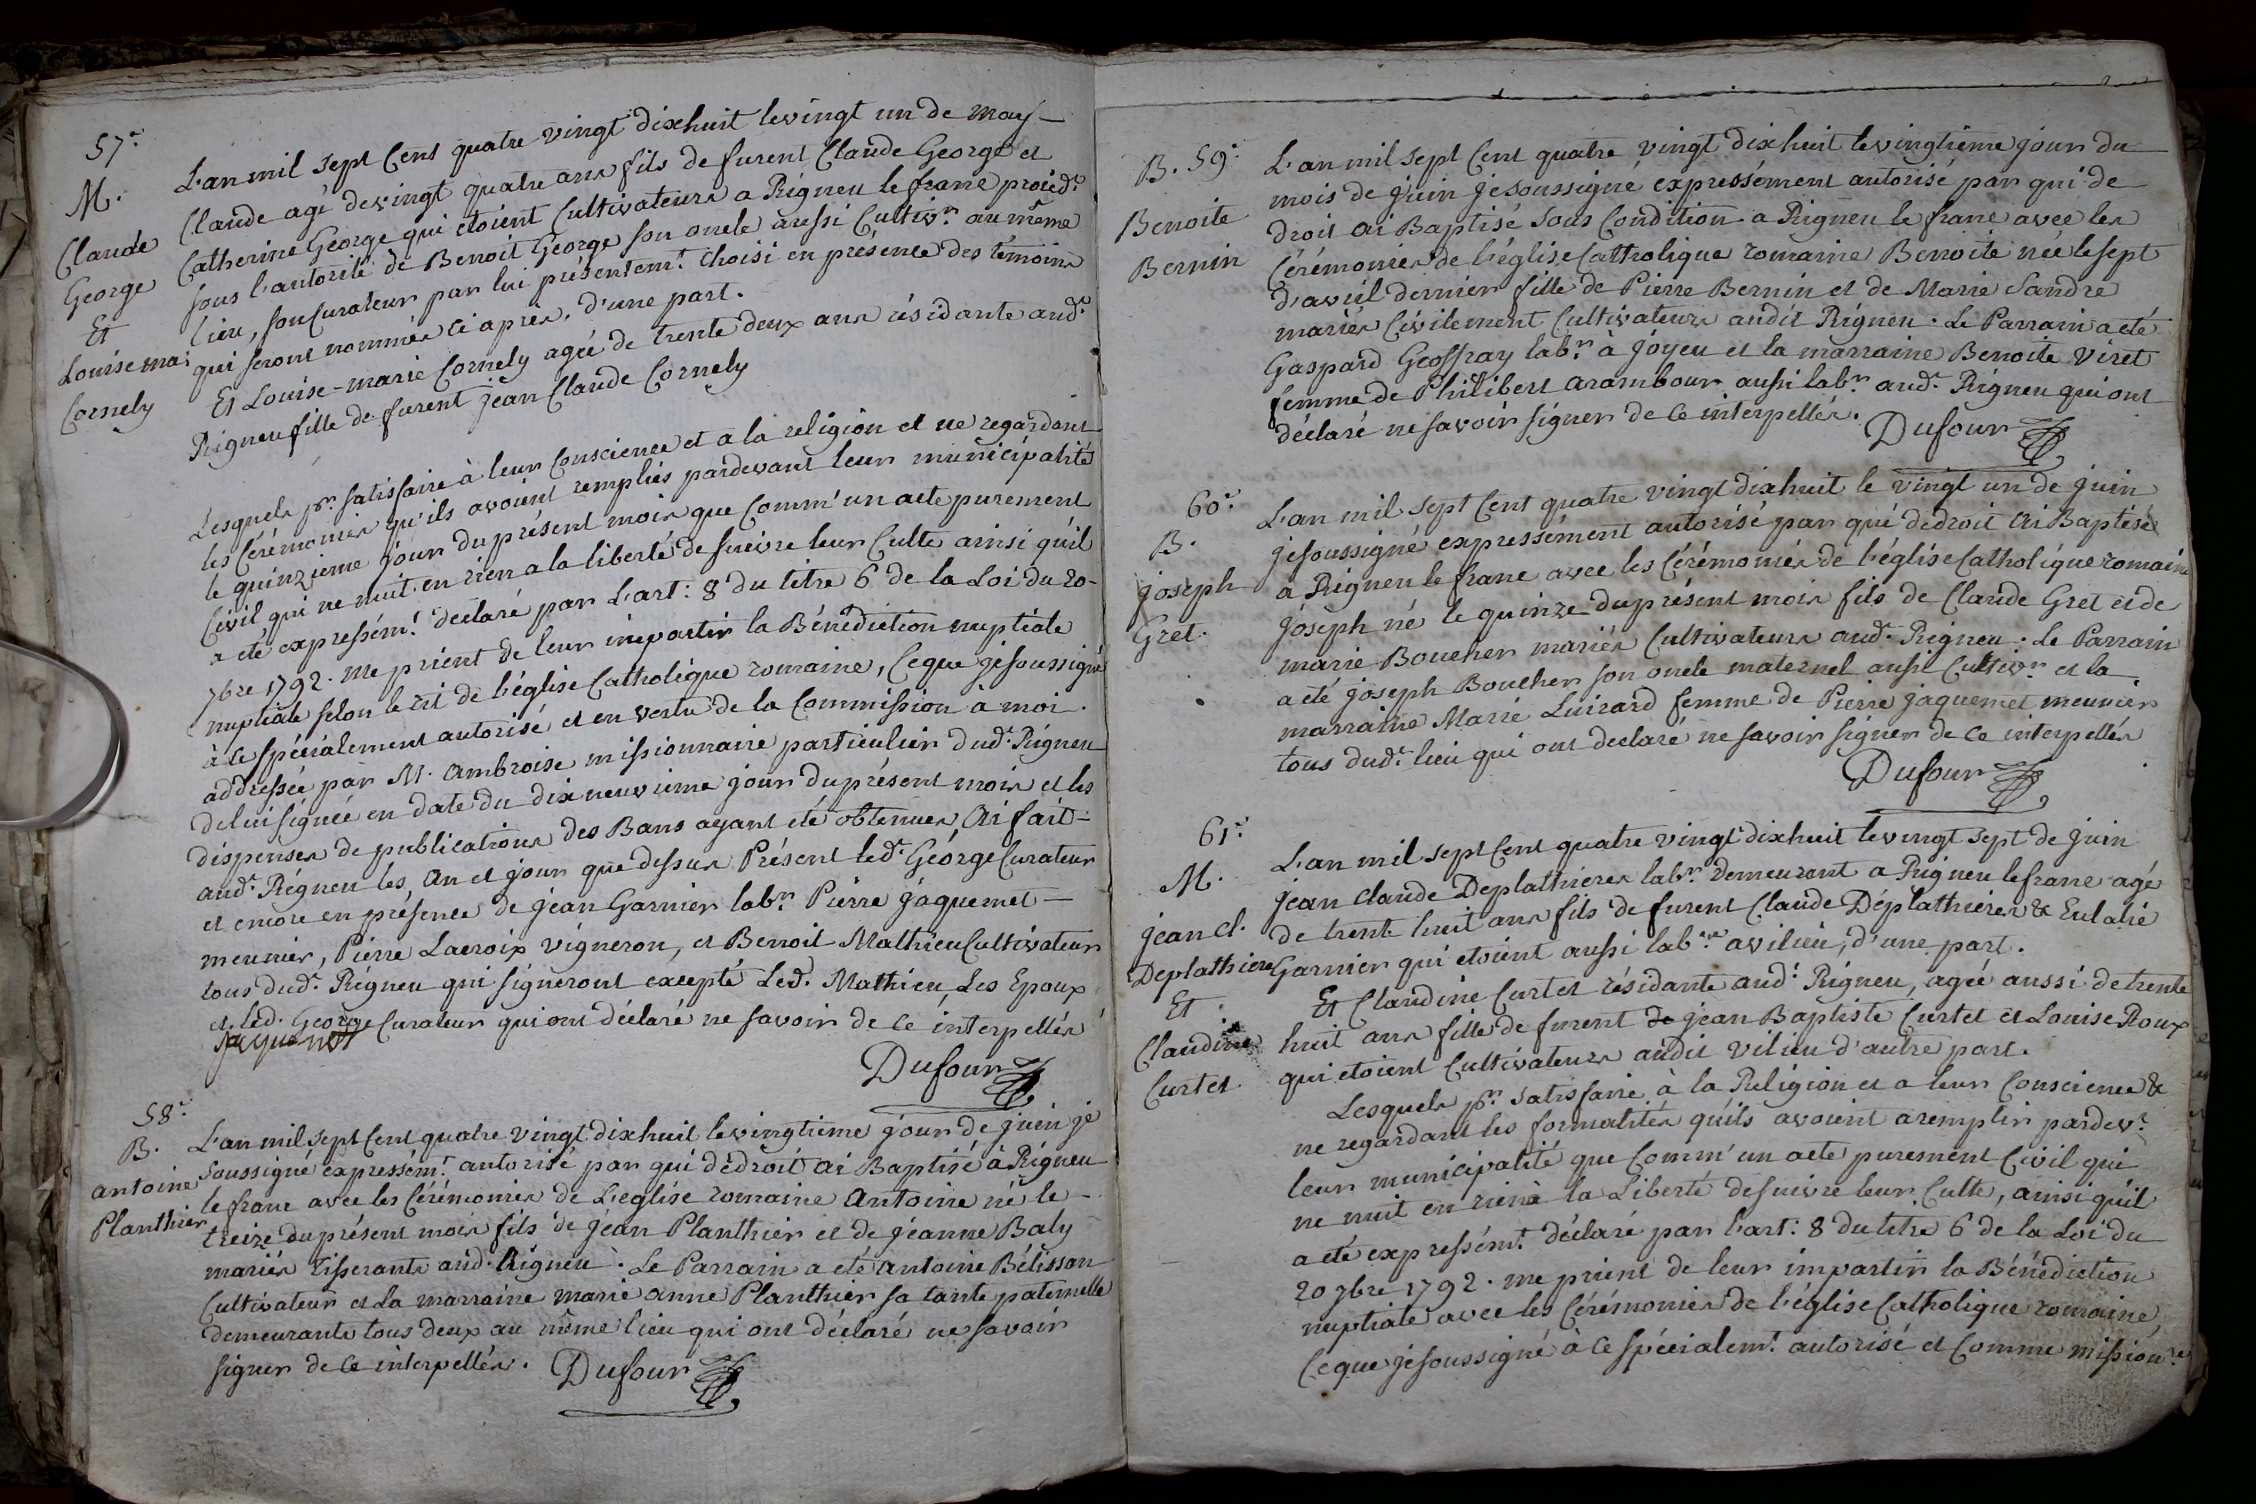 57.e
M.
Claude
George
Et
Louise mar
Cornely
L'an mil sept Cent quatre vingt dixhuit le vingt un de may
Claude agé de vingt quatre ans fils de furent Claude George et
Catherine George qui etoient Cultivateurs a Rigneu le franc proced.t
sous l'autorité de Benoit George son oncle aussi Cultiv.r au même
lieu, son Curateur par lui présentem.t choisi en présence des témoins
qui seront nommés ci après, d'une part.
Et Louise-marie Cornely agée de trente deux ans résidante aud.t
Rigneu fille de furent jean Claude Cornely
Lesquels p.r satisfaire à leur Conscience et a la religion et ne regardant
les Cérémonies qu'ils avoient remplies pardevant leur municipalité
le quinzieme jour du présent mois que Comm'un acte purement
Civil qui ne nuit en rien a la liberté de suivre leur Culte ainsi qu'il
a été expressém.t déclaré par L'art: 8 du titre 6 de la Loi du 20
7bre 1792. me prient de leur impartir la Bénédiction nuptiale
nuptiale selon le rit de l'église Catholique romaine, Ceque je soussigné
à ce spécialement autorisé et en vertu de la Commission à moi
addressée par M. Ambroise missionnaire particulier dud.t Rigneu
de lui signée en date du dix neuvieme jour du présent mois et les
dispenses de publications des Bans ayant été obtenues, Ai fait
aud.t Rigneu les, An et jour que dessus Présent led.t George Curateur
et encore en présence de jean Garnier lab.r Pierre jaquemet
meunier, Pierre Lacroix vigneron, et Benoit Mathieu Cultivateur
tous dud.t Rigneu qui signeront excepté Led. Mathieu, Les Epoux
et led. George Curateur qui ont déclaré ne savoir de ce interpellés
Dufour
58.e
B.
antoine
Planthier
L'an mil sept Cent quatre vingt dixhuit le vingtieme jour de juin je
soussigné expressém.t autorisé par qui de droit ai Baptisé à Rigneu
le franc avec les Cérémonies de L'eglise romaine Antoine né le
treize du présent mois fils de jean Planthier et de jeanne Baly
mariés tisserants aud. Rigneu. Le Parrain a été Antoine Bélisson
Cultivateur et La marraine marie anne Planthier sa tante paternelle
demeurants tous deux au même lieu qui ont déclaré ne savoir
signer de ce interpellés. Dufour
B. 59.e
Benoite
Bernin
L'an mil sept Cent quatre vingt dixhuit le vingtième jour du
mois de juin je soussigné expressément autorisé par qui de
droit ai Baptisé sous Condition a Rigneu le franc avec les
Cérémonies de l'église Catholique romaine Benoite née le sept
d'avril dernier fille de Pierre Bernin et de Marie Sandre
mariés Civilement Cultivateurs audit Rigneu. Le Parrain a été
Gaspard Geoffray lab.r à joyeu et la marraine Benoite Viret
femme de Philibert arambour aussi lab.r aud.t Rigneu qui ont
déclaré ne savoir signer de ce interpellés.
Dufour
60.e
B.
joseph
Gret.
L'an mil sept Cent quatre vingt dixhuit le vingt un de juin
je soussigné expressément autorisé par qui de droit ai Baptisé
a Rigneu le franc avec les Cérémonies de l'église Catholique romaine
joseph né le quinze du présent mois fils de Claude Gret et de
marie Boucher mariés Cultivateurs aud.t Rigneu. Le Parrain
a été joseph Boucher son oncle maternel aussi Cultiv.r et la
marraine Marie Luizard femme de Pierre jaquemet meunier
tous dud.t lieu qui ont déclaré ne savoir signer de ce interpellés
Dufour
61.e
M.
jean Cl.
Deplathieres
Et
Claudine
Curtet
L'an mil sept Cent quatre vingt dixhuit le vingt sept de juin
jean Claude Deplathieres lab.r demeurant a Rigneu le franc agé
de trente huit ans fils de furent Claude Déplathieres & Eulalie
Garnier qui etoient aussi lab.rs a vilieu, d'une part.
Et Claudine Curtet résidante aud.t Rigneu, agée aussi de trente
huit ans fille de furent de jean Baptiste Curtet et Louise Roux
qui etoient Cultivateurs audit Vilieu d'autre part.
Lesquels p.r satisfaire à la Religion et a leur Conscience &
ne regardant les formalités qu'ils avoient a remplir pardev.t
leur municipalité que Comm'un acte purement Civil qui
ne nuit en rien à la Liberté de suivre leur Culte, ainsi qu'il
a été expressém.t déclaré par l'art: 8 du titre 6 de la Loi du
20 7bre 1792. me prient de leur impartir la Bénédiction
nuptiale avec les Cérémonies de l'église Catholique romaine,
Ceque je soussigné à ce spécialem.t autorisé et Comme mission.re